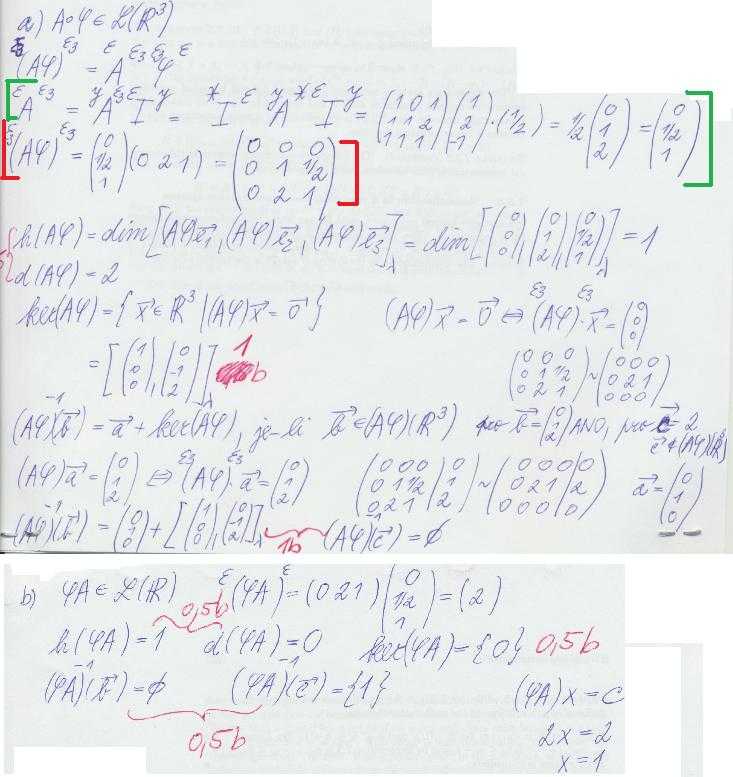 a) A∘φ ∈ ℒ(ℝ³)
(Aφ)^ε3 = ^εA^ε3 ^ε3φ^ε
^εA^ε3 = ^yA^ε3 ^εI^y = ^xI^ε ^yA^x ^εI^y = (1 0 1; 1 1 2; 1 1 1) (1; 2; -1) · (1/2) = 1/2 (0; 1; 2) = (0; 1/2; 1)
^ε3(Aφ)^ε3 = (0; 1/2; 1) (0 2 1) = (0 0 0; 0 1 1/2; 0 2 1)
h(Aφ) = dim[(Aφ)e⃗1, (Aφ)e⃗2, (Aφ)e⃗3]λ = dim[(0; 0; 0), (0; 1; 2), (0; 1/2; 1)]λ = 1
d(Aφ) = 2
ker(Aφ) = {x⃗ ∈ ℝ³ | (Aφ)x⃗ = 0⃗} (Aφ)x⃗ = 0⃗ ⇔ ^ε3(Aφ)·x⃗^ε3 = (0; 0; 0)
= [(1; 0; 0), (0; -1; 2)]λ 1b (0 0 0; 0 1 1/2; 0 2 1) ~ (0 0 0; 0 2 1; 0 0 0)
(Aφ)⁻¹(b⃗) = a⃗ + ker(Aφ), je-li b⃗ ∈ (Aφ)(ℝ³) pro b⃗ = (0; 1; 2) ANO, pro c⃗ = 2
c⃗ ∉ (Aφ)(ℝ³)
(Aφ)a⃗ = (0; 1; 2) ⇔ ^ε3(Aφ)·a⃗^ε3 = (0; 1; 2) (0 0 0 | 0; 0 1 1/2 | 1; 0 2 1 | 2) ~ (0 0 0 | 0; 0 2 1 | 2; 0 0 0 | 0) a⃗ = (0; 1; 0)
(Aφ)⁻¹(b⃗) = (0; 1; 0) + [(1; 0; 0), (0; -1; 2)]λ 1b (Aφ)⁻¹(c⃗) = ∅
b) φA ∈ ℒ(ℝ) ^ε(φA)^ε = (0 2 1) (0; 1/2; 1) = (2)
0,5b
h(φA) = 1 d(φA) = 0 ker(φA) = {0} 0,5b
(φA)⁻¹(b⃗) = ∅ (φA)⁻¹(c⃗) = {1} (φA)x = c
0,5b 2x = 2
x = 1